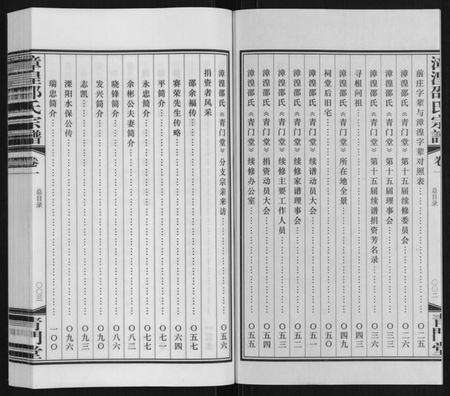 漳湟邵氏宗譜
卷一
总目录
〇〇二
青門堂
前庄字辈与漳湟字辈对照表……〇二五
漳湟邵氏（青门堂）第十五届续修委员会……〇二六
漳湟邵氏（青门堂）第十五届续修理事会……〇三二
漳湟邵氏（青门堂）第十五届续谱捐资芳名录……〇三六
寻根问祖……〇四三
漳湟邵氏（青门堂）所在地全景……〇四九
祠堂后旧宅……〇五〇
漳湟邵氏（青门堂）续谱动员大会……〇五一
漳湟邵氏（青门堂）续修家谱理事会……〇五二
漳湟邵氏（青门堂）续修主要工作人员……〇五三
漳湟邵氏（青门堂）捐资动员大会……〇五四
漳湟邵氏（青门堂）续修办公室……〇五五
漳湟邵氏（青门堂）分支宗亲来访……〇五六
捐资者风采
邵余福传……〇五七
赛荣先生传略……〇六四
平一简介……〇七一
永忠简介……〇七七
余彬公夫妻简介……〇八二
晓锋简介……〇八六
发兴简介……〇九〇
志凯……〇九三
溧阳水保公传……〇九六
瑞忠简介……一〇〇
漳湟邵氏宗譜
卷一
总目录
〇〇三
青門堂